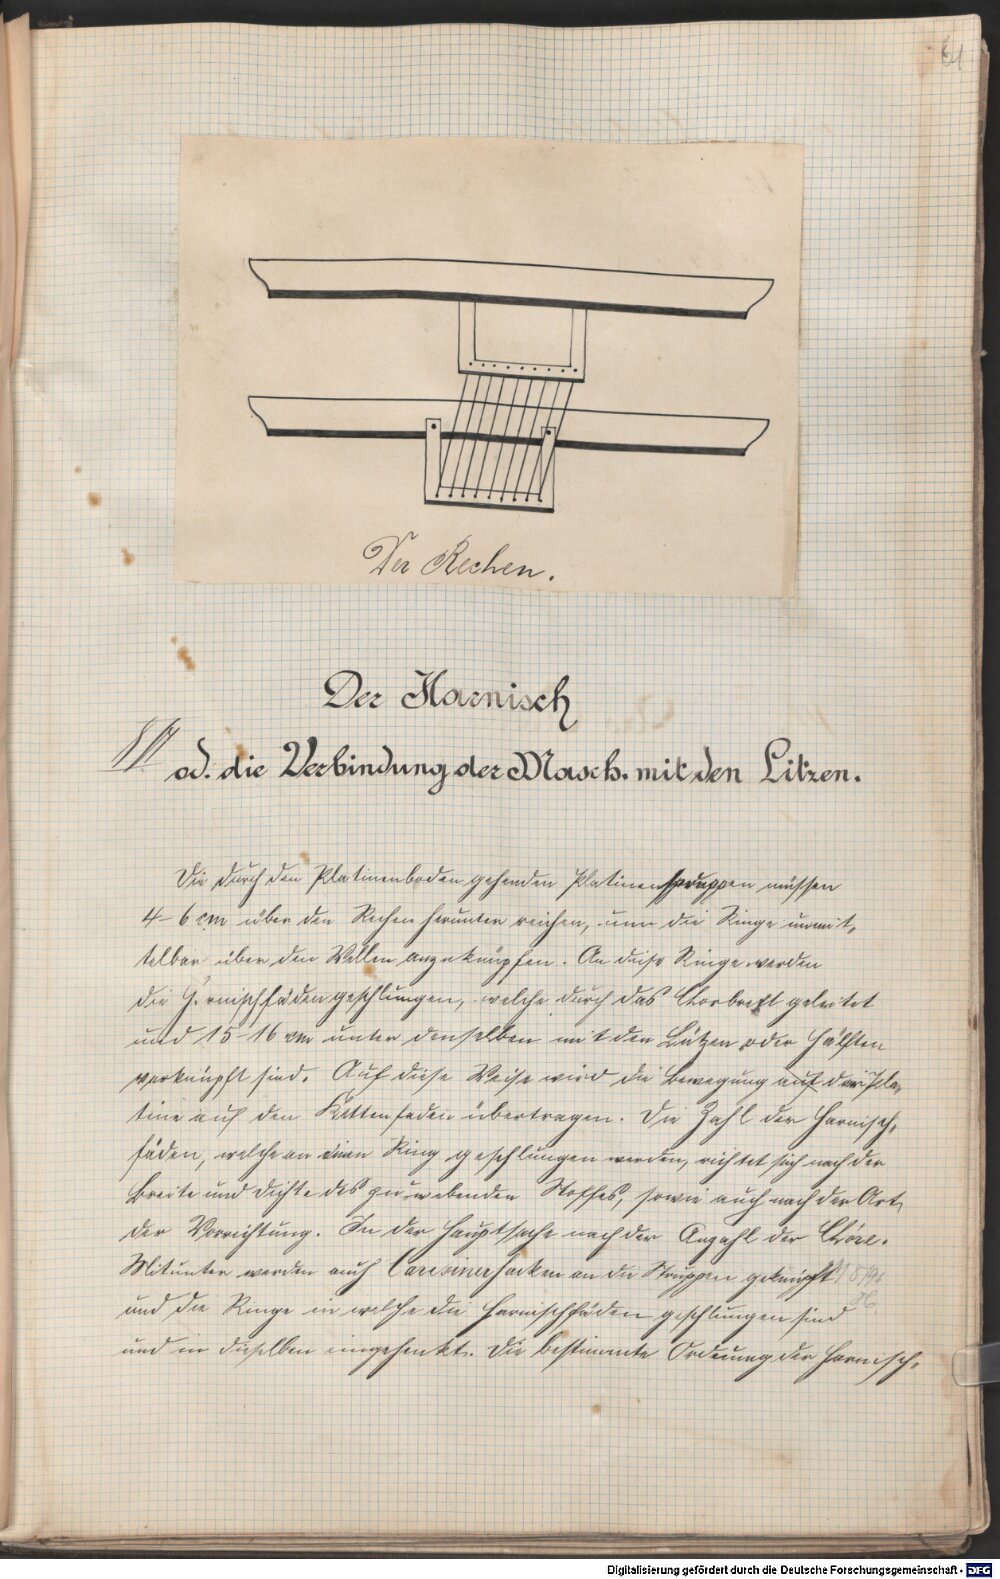 61
Der Rechen.
Der Harnisch
od. die Verbindung der Masch. mit den Litzen.
Die durch den Platinenboden gehenden Platinenstruppen müssen
4-6 cm über den Rechen herunter reichen, um die Ringe unmit-
telbar über den Wellen anzuknüpfen. An diese Ringe werden
die Harnischfäden geschlungen, welche durch das Chorbrett geleitet
und 15-16 cm unter denselben mit den Litzen oder Hälften
verknüpft sind. Auf diese Weise wird die Bewegung auf der Pla-
tine auf den Kettenfaden übertragen. Die Zahl der Harnisch-
fäden, welche an einen Ring geschlungen werden, richtet sich nach der
Breite und Dichte des zu webenden Stoffes, sowie auch nach der Art
der Vorrichtung. In der Hauptsache nach der Anzahl der Chöre.
Mitunter werden auch Caresinerhacken an die Struppen geknüpft
und die Ringe in welche die Harnischfäden geschlungen sind
und in dieselben eingehenkt. Die bestimmte Ordnung der Harnisch-
Digitalisierung gefördert durch die Deutsche Forschungsgemeinschaft - DFG